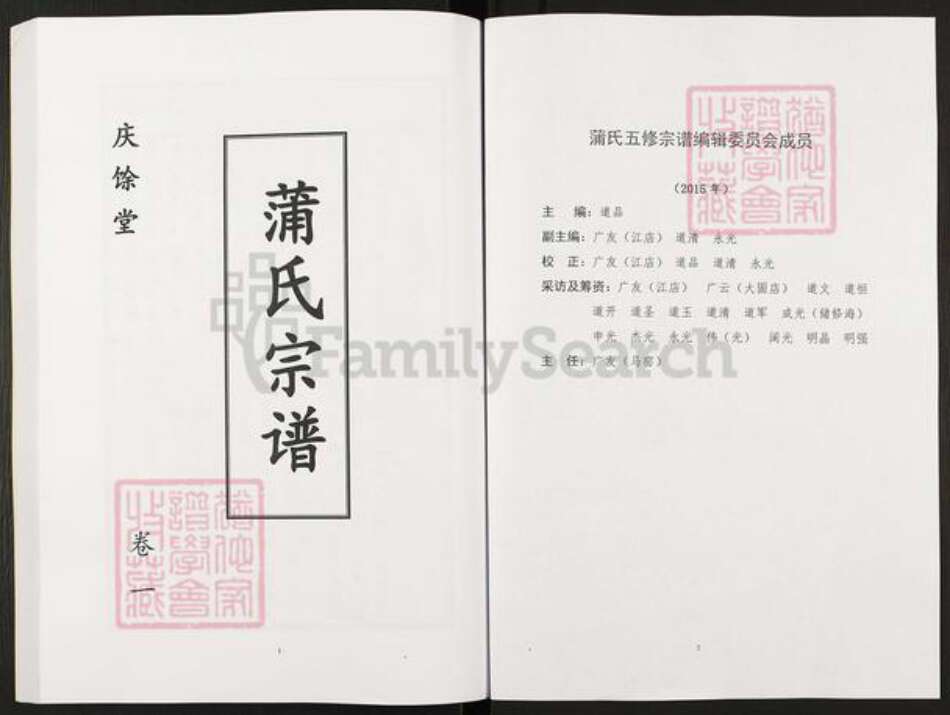 庆馀堂
蒲氏宗谱
卷一
1
蒲氏五修宗谱编辑委员会成员
（2015 年）
主 编：道品
副主编：广友（江店） 道清 永光
校 正：广友（江店） 道品 道清 永光
采访及筹资：广友（江店） 广云（大圆店） 道文 道恒
道开 道圣 道玉 道清 道军 成光（储修海）
申光 杰光 永光 伟（光） 闽光 明晶 明强
主 任：广友（马窑）
FamilySearch